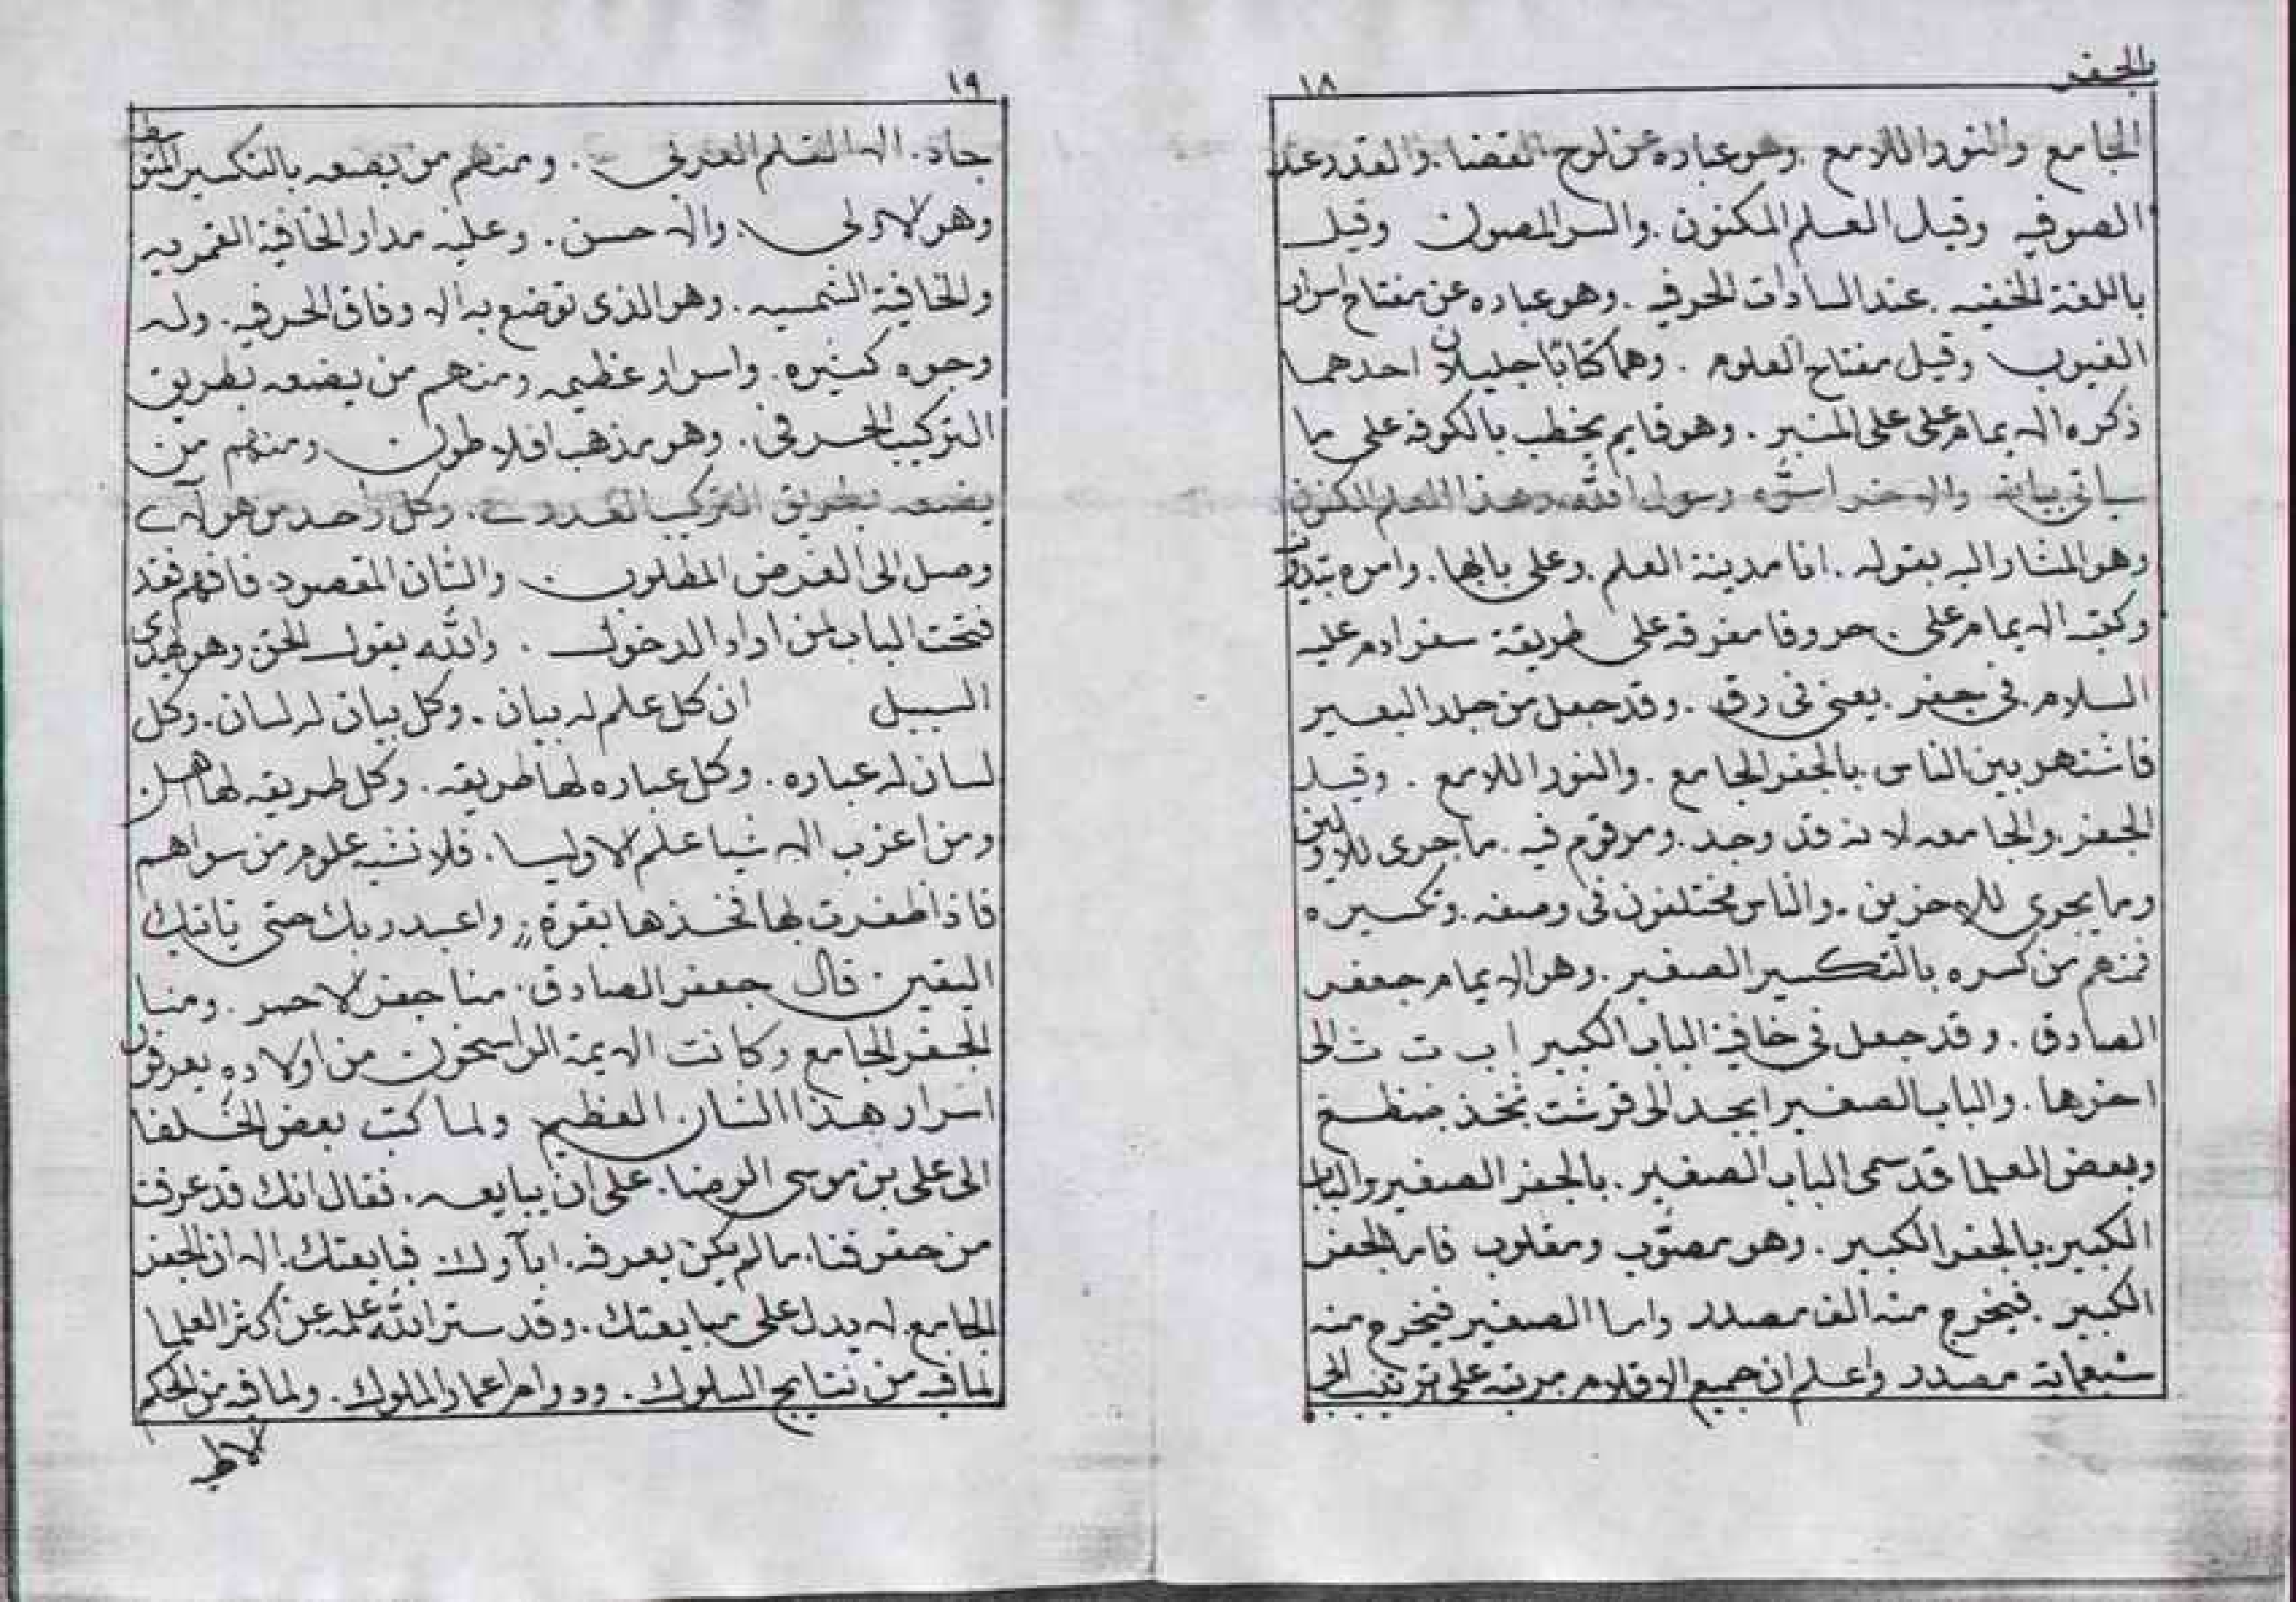 بالجفر
١٨
الجامع والنور اللامع . وهو عباره عن لوح القضا . والقدر عند
الصوفيه وقيل العلم المكنون . والسر المصون وقيل
باللغة الخفيه . عند السادات الحرفيه . وهو عباره عن مفتاح اسرار
الغيوب وقيل مفتاح العلوم . وهما كتابان جليلان احدهما
ذكره الايمام على على المنبر . وهو قايم يخطب بالكوفه على ما
سياتى بيانه والاخر اسره رسول الله وهذا العلم المكنون
وهو المشار اليه بقوله . انا مدينة العلم . وعلى بابها . وامره بتدوين
وكتبه الايمام على حروفا مفرقه على طريقة سفر ادم عليه
السلام . فى جفر . يعنى فى رق . وقد جعل من جلد البعير
فاشتهر بين الناس . بالجفر الجامع . والنور اللامع . وقيل
الجفر . والجامعه لانه قد وجد . ومرقوم فيه . ما جرى للاولين
وما يجرى للاخرين . والناس مختلفون فى وضعه . وتكسيره
فمنهم من كسره بالتكسير الصغير . وهو الايمام جعفر
الصادق . وقد جعل فى خافية الباب الكبير ا ب ت ث الى
اخرها . والباب الصغير ابجد الى قرشت ثخذ ضظغ
وبعض العلما قد سمى الباب الصغير . بالجفر الصغير والباب
الكبير . بالجفر الكبير . وهو مصوب ومقلوب فاما الجفر
الكبير . فيخرج منه الف مصدر واما الصغير فيخرج منه
سبعماية مصدر واعلم ان جميع الاقلام مرتبه على ترتيب ابجد
١٩
جاد . الا القلم العربى . ومنهم من يضعه بالتكسير المتوسط
وهو لاولى . والاحسن . وعليه مدار الخافية القمريه
والخافية الشمسيه . وهو الذى توضع به الاوفاق الحرفيه . وله
وجوه كثيره . واسرار عظيمه ومنهم من يضعه بطريق
التركيب الحرفى . وهو مذهب افلاطون ومنهم من
يضعه بطريق التركيب العددى . وكل واحد من هولاى
وصل الى الغرض المطلوب والشان المقصود فافهم فقد
فتحت الباب لمن اراد الدخول . والله يقول الحق وهو يهدى
السبيل ان كل علم له بيان . وكل بيان له لسان . وكل
لسان له عباره . وكل عباره لها طريقه . وكل طريقه لها اهل
ومن اغرب الاشيا علم لاوليا . فلا تشبه علوم من سواهم
فاذا ظفرت بها فخذها بقوة ،، واعبد ربك حتى ياتيك
اليقين قال جعفر الصادق . منا جفر لاحمر . ومنا
الجفر الجامع وكانت الايمة الراسخون من اولاده يعرفون
اسرار هذا الشان العظيم ولما كتب بعض الخلفا
الى على بن موسى الرضا . على ان يبايعه . فقال انك قد عرفت
من حقوقنا . ما لم يكن يعرفه . اباؤك فبايعتك . الا ان الجفر
الجامع . لا يدل على مبايعتك . وقد ستر الله علمه عن اكثر العلما
لما فيه من نتايج السلوك . ودوام اعمار الملوك . ولما فيه من الحكم